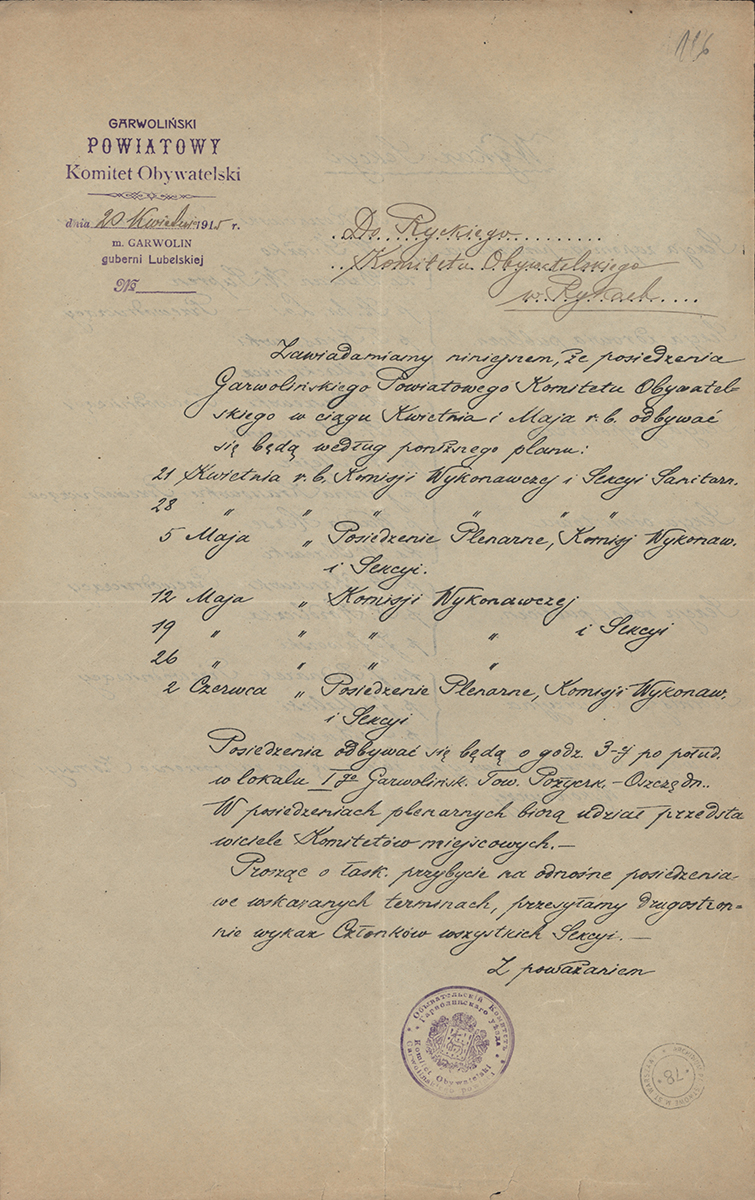 116
GARWOLIŃSKI
POWIATOWY
Komitet Obywatelski
dnia 20 Kwietnia 1915 r.
m. GARWOLIN
guberni Lubelskiej
№
Do Ryckiego
Komitetu Obywatelskiego
w Rykach
Zawiadamiamy niniejszem, że posiedzenia
Garwolińskiego Powiatowego Komitetu Obywatel-
skiego w ciągu Kwietnia i Maja r. b. odbywać
się będą według poniższego planu:
21 Kwietnia r. b. Komisji Wykonawczej i Sekcyi Sanitarn.
28 " " " " " "
5 Maja " Posiedzenie Plenarne, Komisj Wykonaw.
i Sekcyi.
12 Maja " Komisji Wykonawczej
19 " " " " i Sekcyi
26 " " " "
2 Czerwca " Posiedzenie Plenarne, Komisji Wykonaw.
i Sekcyi
Posiedzenia odbywać się będą o godz. 3-ej po połud.
w lokalu I go Garwolińsk. Tow. Pożyczk.-Oszczędn..
W posiedzeniach plenarnych biorą udział przedsta
wiciele Komitetów miejscowych.—
Prosząc o łask. przybycie na odnośne posiedzenia
we wskazanych terminach, przesyłamy drugostron=
nie wykaz Członków wszystkich Sekcyi.—
Z poważaniem
Обывательскій Комитетъ
Гарволинскаго уѣзда
Komitet Obywatelski
Garwolińskiego Powiatu
78